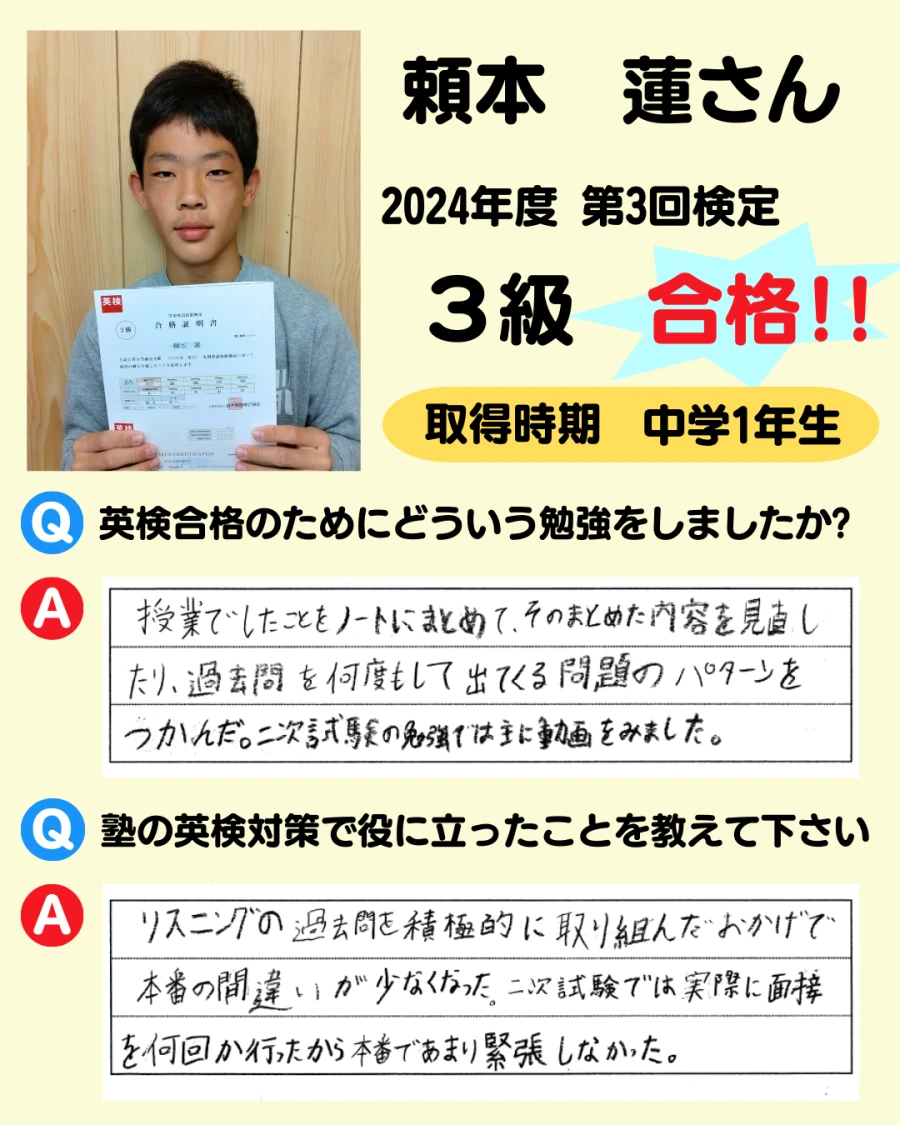 頼本　蓮さん
2024年度 第3回検定
3級 合格!!
取得時期　中学1年生
英検
3級
合格証明書
頼本 蓮
英検
Q 英検合格のためにどういう勉強をしましたか?
A 授業でしたことをノートにまとめて、そのまとめた内容を見直し
たり、過去問を何度もして出てくる問題のパターンを
つかんだ。二次試験の勉強では主に動画をみました。
Q 塾の英検対策で役に立ったことを教えて下さい
A リスニングの過去問を積極的に取り組んだおかげで
本番の間違いが少なくなった。二次試験では実際に面接
を何回か行ったから本番であまり緊張しなかった。